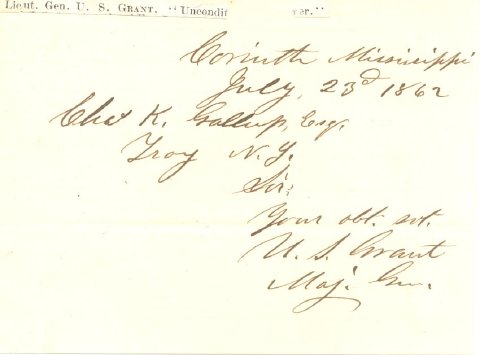 Lieut. Gen. U. S. GRANT. "Uncondit er."
Corinth Mississippi
July, 23d 1862
Chas K. Gallup, Esq.
Troy N.Y.
Sir:
Your obt. svt.
U. S. Grant
Maj. Gen.